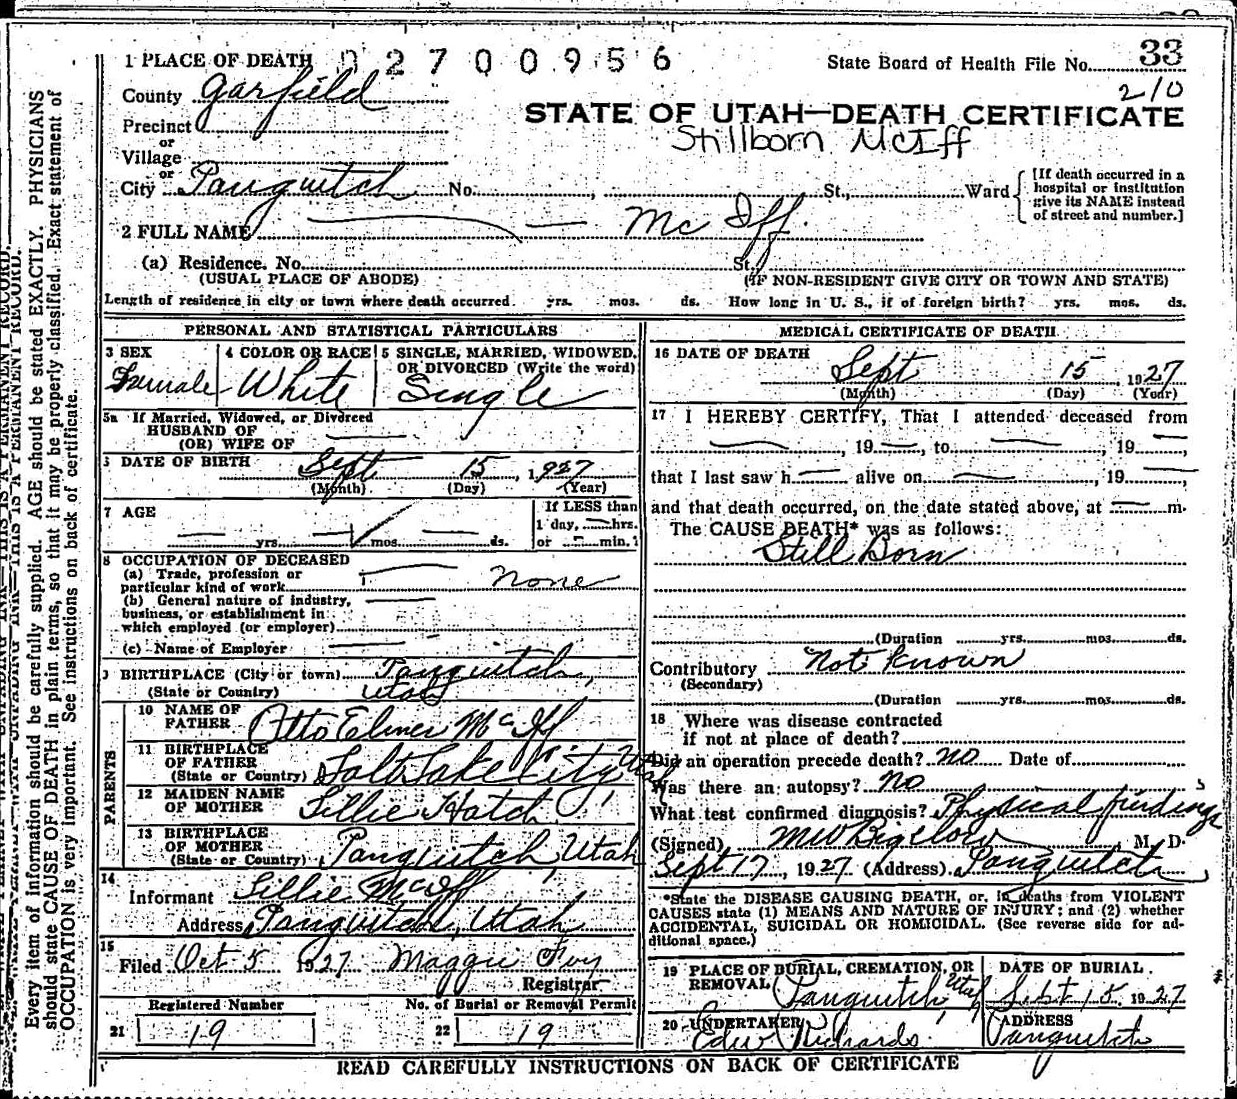 33
1 PLACE OF DEATH 02700956 State Board of Health File No. 33
210
County Garfield
STATE OF UTAH—DEATH CERTIFICATE
Precinct
or
Stillborn McIff
Village
or
City Panguitch No. , St., Ward
[If death occurred in a
hospital or institution
give its NAME instead
of street and number.]
2 FULL NAME — Mc Iff
(a) Residence. No. St.
(USUAL PLACE OF ABODE) (IF NON-RESIDENT GIVE CITY OR TOWN AND STATE)
Length of residence in city or town where death occurred. yrs. mos. ds. How long in U. S., if of foreign birth? yrs. mos. ds.
PERSONAL AND STATISTICAL PARTICULARS
3 SEX
Female
4 COLOR OR RACE
White
5 SINGLE, MARRIED, WIDOWED,
OR DIVORCED (Write the word)
Single
5a If Married, Widowed, or Divorced
HUSBAND OF
(OR) WIFE OF —
6 DATE OF BIRTH Sept 15, 1927
(Month) (Day) (Year)
7 AGE
— yrs. — mos. — ds.
If LESS than
1 day, — hrs.
or — min.?
8 OCCUPATION OF DECEASED
(a) Trade, profession or
particular kind of work none
(b) General nature of industry,
business, or establishment in
which employed (or employer)
(c) Name of Employer —
9 BIRTHPLACE (City or town) Panguitch,
(State or Country) Utah
PARENTS
10 NAME OF
FATHER Otto Elmer McIff
11 BIRTHPLACE
OF FATHER
(State or Country) Salt Lake City Utah
12 MAIDEN NAME
OF MOTHER Lillie Hatch
13 BIRTHPLACE
OF MOTHER
(State or Country) Panguitch, Utah
14
Informant Lillie McIff
Address Panguitch, Utah
15
Filed Oct 5 1927 Maggie Foy
Registrar
Registered Number No. of Burial or Removal Permit
21 19 22 19
MEDICAL CERTIFICATE OF DEATH
16 DATE OF DEATH
Sept 15, 1927
(Month) (Day) (Year)
17 I HEREBY CERTIFY, That I attended deceased from
—, 19—, to — 19—,
that I last saw h— alive on —, 19—,
and that death occurred, on the date stated above, at — m.
The CAUSE DEATH* was as follows:
Still Born
(Duration yrs. mos. ds.
Contributory Not Known
(Secondary)
(Duration yrs. mos. ds.
18 Where was disease contracted
if not at place of death?
Did an operation precede death? no Date of
Was there an autopsy? no
What test confirmed diagnosis? Physical findings
(Signed) MW Bigelow M. D.
Sept 17, 1927 (Address) Panguitch
*State the DISEASE CAUSING DEATH, or, in deaths from VIOLENT
CAUSES state (1) MEANS AND NATURE OF INJURY; and (2) whether
ACCIDENTAL, SUICIDAL OR HOMICIDAL. (See reverse side for ad-
ditional space.)
19 PLACE OF BURIAL, CREMATION, OR
REMOVAL
Panguitch, Utah
DATE OF BURIAL
Sept 15 1927
20 UNDERTAKER
Edw Richards
ADDRESS
Panguitch
READ CAREFULLY INSTRUCTIONS ON BACK OF CERTIFICATE
Every item of information should be carefully supplied. AGE should be stated EXACTLY. PHYSICIANS
should state CAUSE OF DEATH in plain terms, so that it may be properly classified. Exact statement of
OCCUPATION is very important. See instructions on back of certificate.